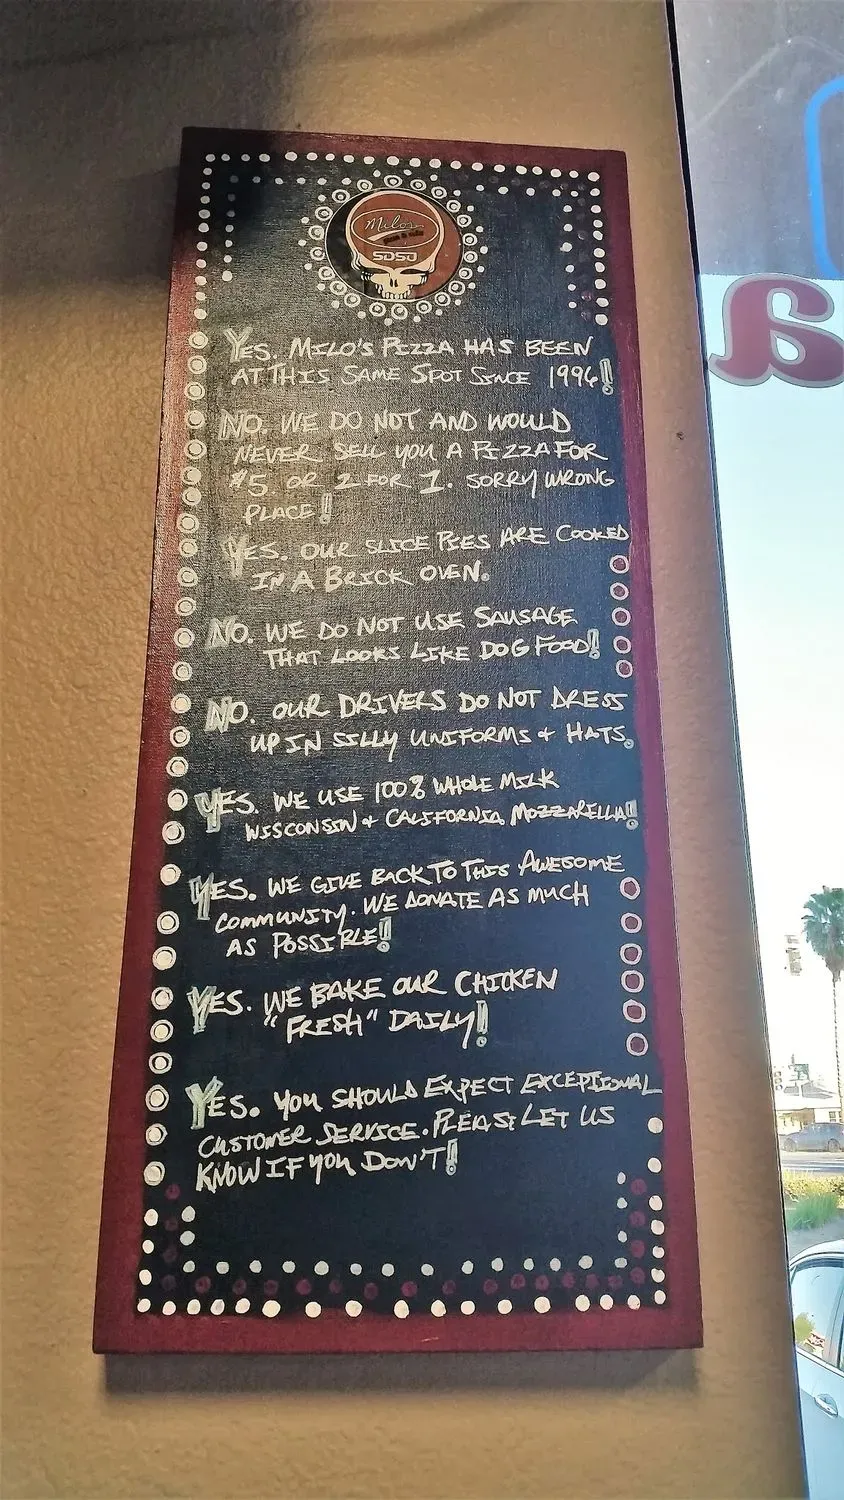 Milo's
SDSU
a
YES. MILO'S PIZZA HAS BEEN
AT THIS SAME SPOT SINCE 1996!
NO. WE DO NOT AND WOULD
NEVER SELL YOU A PIZZA FOR
$5. OR 2 FOR 1. SORRY WRONG
PLACE!
YES. OUR SLICE PIES ARE COOKED
IN A BRICK OVEN.
NO. WE DO NOT USE SAUSAGE
THAT LOOKS LIKE DOG FOOD!
NO. OUR DRIVERS DO NOT DRESS
UP IN SILLY UNIFORMS + HATS.
YES. WE USE 100% WHOLE MILK
WISCONSIN + CALIFORNIA MOZZARELLA!
YES. WE GIVE BACK TO THIS AWESOME
COMMUNITY. WE DONATE AS MUCH
AS POSSIBLE!
YES. WE BAKE OUR CHICKEN
"FRESH" DAILY!
YES. YOU SHOULD EXPECT EXCEPTIONAL
CUSTOMER SERVICE. PLEASE LET US
KNOW IF YOU DON'T!